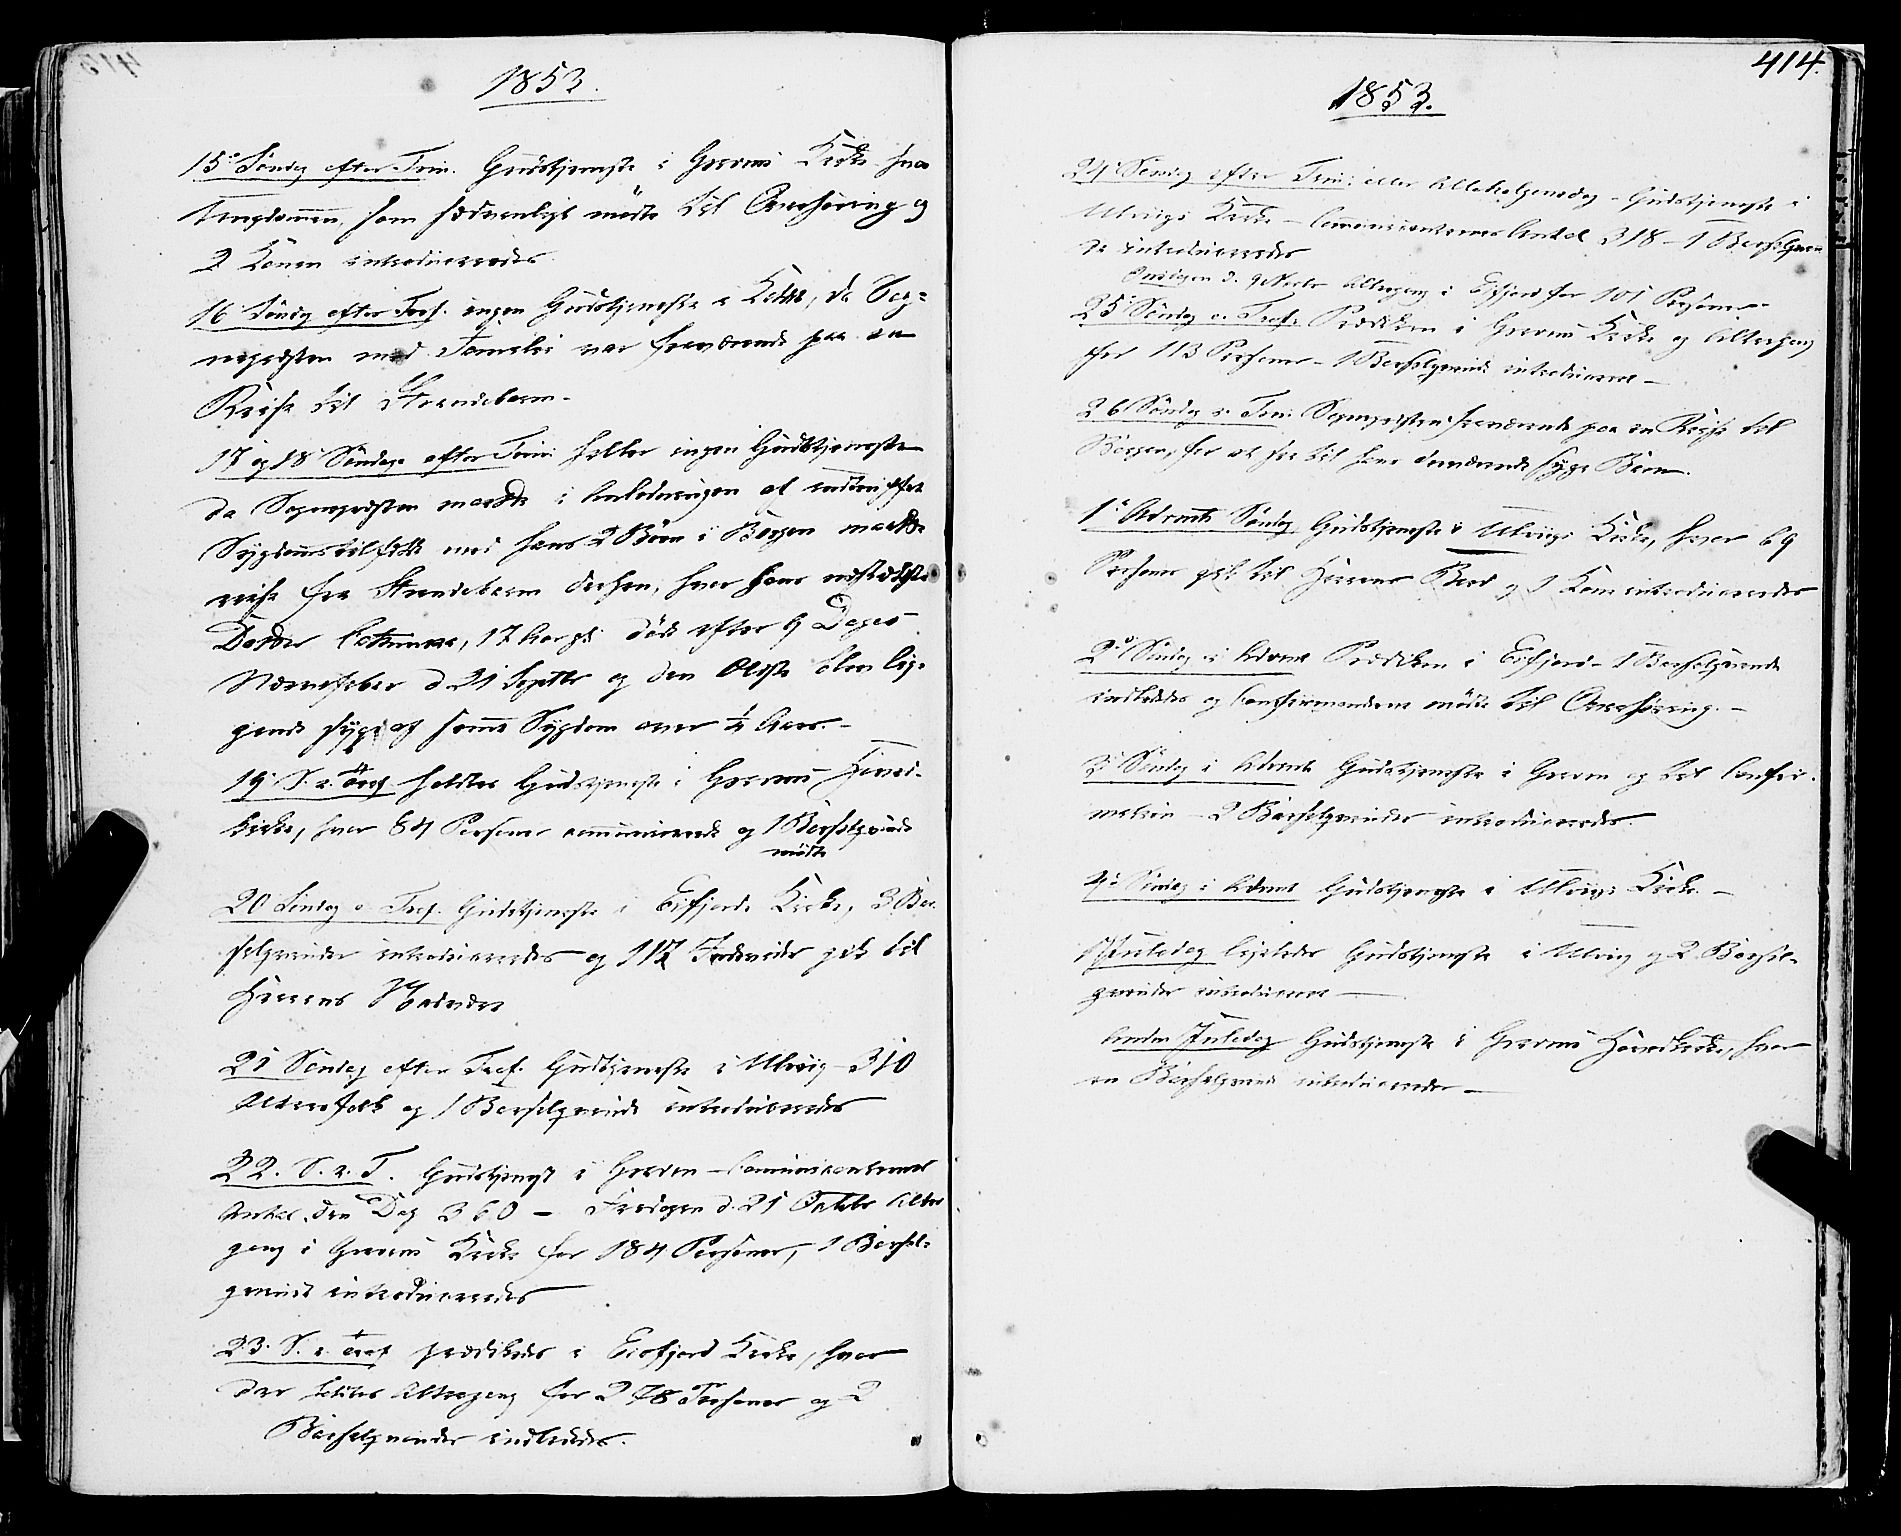 1853.
15de Søndag efter Trin. Gudstjeneste i Gravens Kirke hvor
Ungdommen som sædvanligt mødte til Overhøring og
2 Koner introduceredes.
16 Søndag efter Tref. ingen Gudstjeneste i Kaldet, da Sog-
nepræsten med Familie var fraværende paa en
Reise til Strandebarm.
17 og 18 Søndage efter Trin: heller ingen Gudstjeneste
da Sognepræsten maatte i Anledningen af indtruffet
Sygdomstilfælde med hans 2 Børn i Bergen maatte
reise fra Strandebarm derhen, hvor hans næstældste
Datter, 17 Aar gl. døde efter 9 Dages
Nervefeber d 21 Septbr og den Ældste blev lig-
gende syg af samme Sygdom over ¼ Aar.-
19 S. e. Tref holdtes Gudstjeneste i Gravens Hoved-
kirke, hvor 84 Personer communicerede og 1 Barselqvinde
mødte
20 Søndag e. Tref. Gudstjeneste i Eifjords Kirke, 3 Bar-
selqvinder introduceredes og 112 Individer gik til
Herrens Nadver
21 Søndag efter Tref. Gudstjeneste i Ulvig 310
Altersfolk og 1 Barselqvinde introduceredes
22. S. e. T. Gudstjenest i Graven - Communicanternes
Antal den Dag 360 - Fredagen d. 21 Octobr Alter
gang i Gravens Kirke for 184 Personer, 1 Barsel-
qvinde introduceredes
23. S. e. Tref prædikedes i Eifjord Kirke, hvor
der holdtes Altergang for 278 Personer og 2
Barselqvinder indlededes.
414.
1853.
24 Søndag efter Trin: eller Allehelgensdag - Gudstjeneste i
Ulvigs Kirke - Communicanternes Antal 318 - 1 Barselqvin
de introduceredes
Onsdagen d. 9 Novbr Altergang i Eifjord for 101 Personer
25 Søndag e. Tref. Prædiken i Gravens Kirke og Altergang
for 113 Personer - 1 Barselqvinde introduceret -
26 Søndag e. Trin: Sognepræsten fraværende paa en Reise til
Bergen, for at see til hans derværende syge Børn.
1ste Advents Søndag Gudstjeneste i Ulvigs Kirke, hvor 69
Personer gik til Herrens Bord og 1 Kone introduceredes
2den Søndag i Advent Prædiken i Eifjord - 1 Barselqvinde
indlededes og Confirmanderne mødte til Overhøring. -
3die Søndag i Advent Gudstjeneste i Graven og til Confir-
mation - 2 Barselqvinder introduceredes.
4de Søndag i Advent Gudstjeneste i Ulvigs Kirke. -
1ste Juledag Gudstjeneste i Ulvig og 2 Barsel-
qvinder introduceret -
Anden Juledag Gudstjeneste i Gravens Hovedkirke, hvor
en Barselqvinde introduceredes -